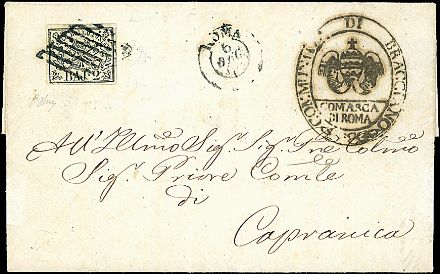 BAI. 2
ROMA
6
DEC
COMUNITA DI BRACCIANO
COMARCA
DI ROMA
All'Illmo Sig. Sig. Pne Colmo
Sig. Priore Comle
di
Capranica